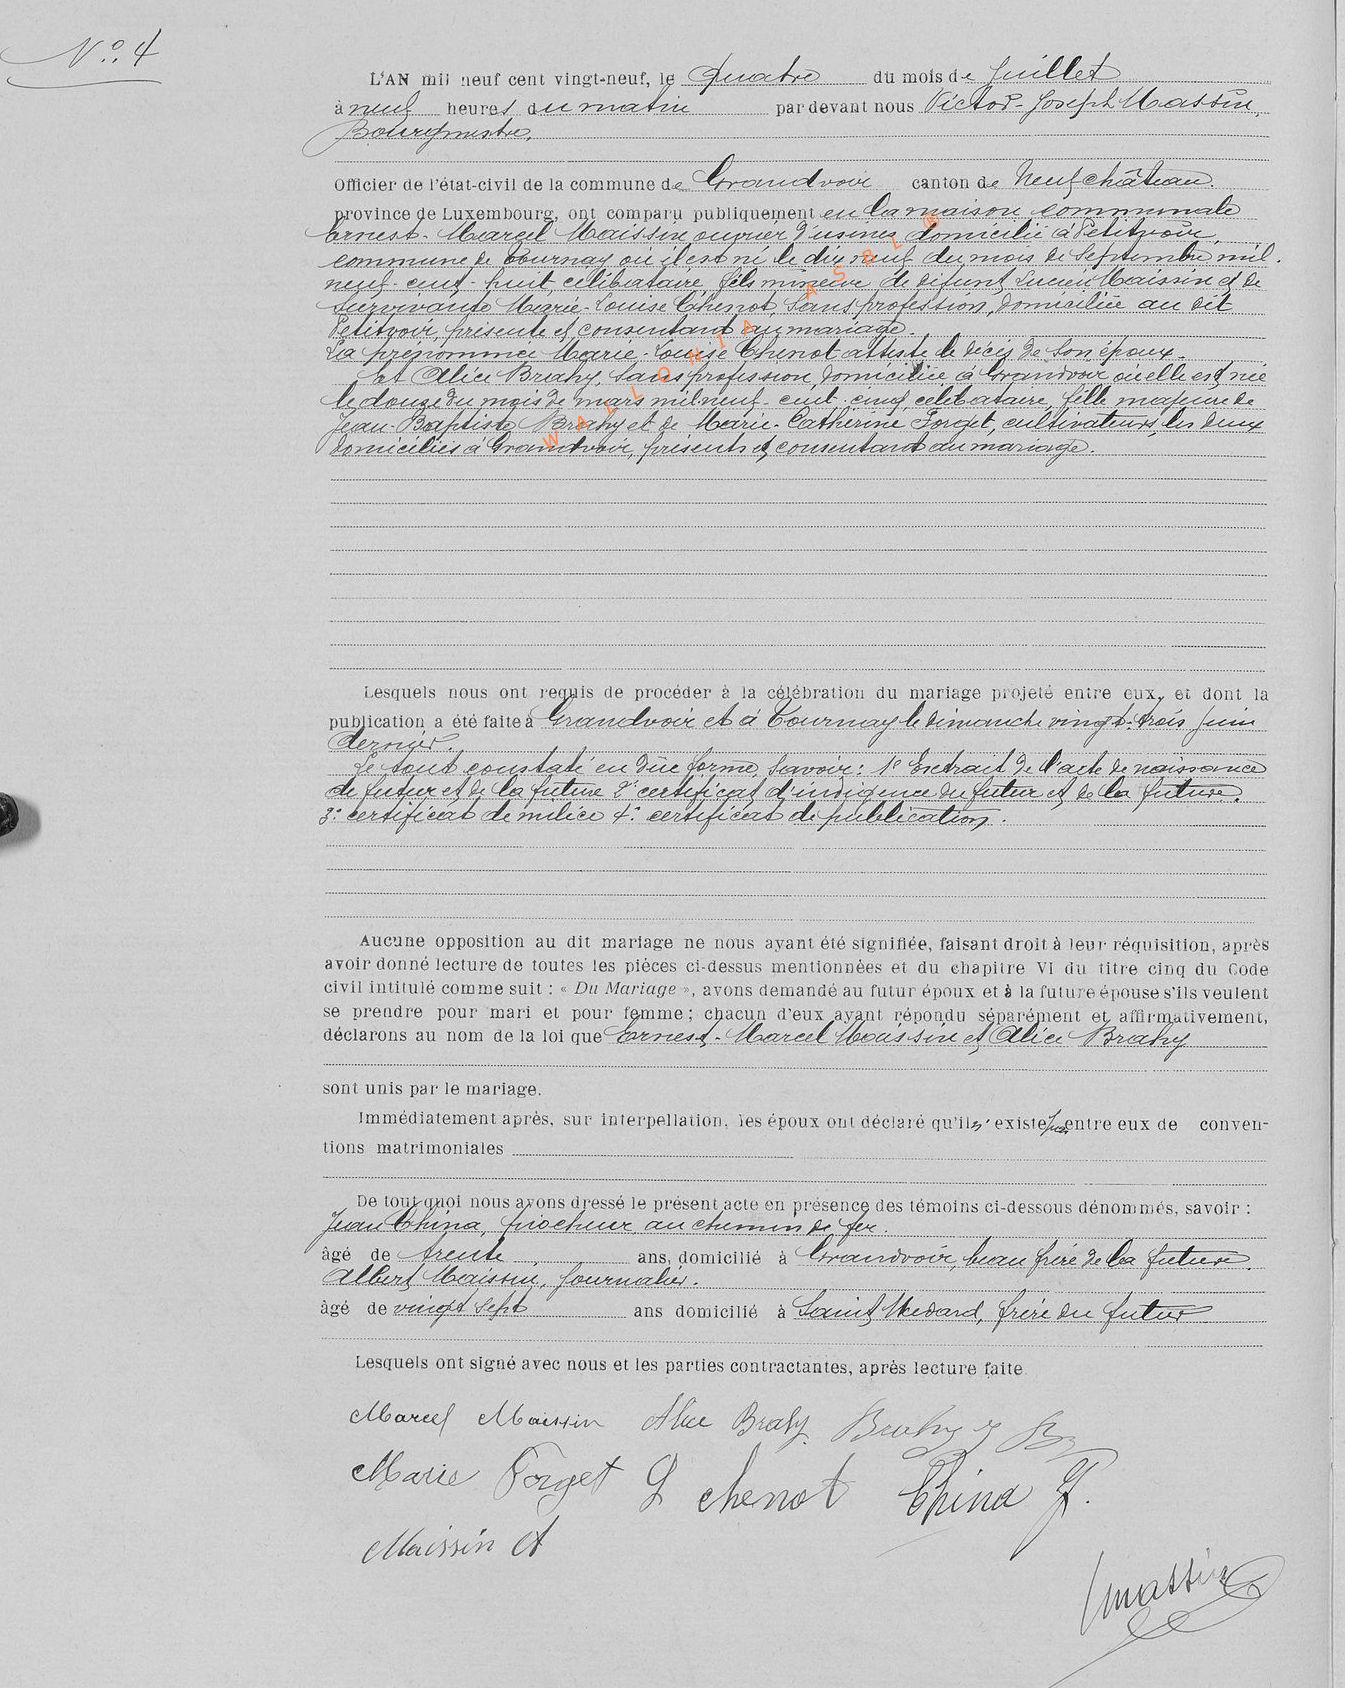 N.º 4
L'AN mil neuf cent vingt-neuf, le Quatre du mois de Juillet
à neuf heures du matin par devant nous Victor-Joseph Massin,
Bourgmestre,
Officier de l'état-civil de la commune de Grandvoir canton de Neufchâteau.
province de Luxembourg, ont comparu publiquement en la maison communale
Ernest-Marcel Maissin ouvrier d'usines domicilié à Petitvoir,
commune de Tournay où il est né le dix neuf du mois de Septembre mil.
neuf-cent-huit, célibataire, fils mineur de défunt Lucien Maissin et de
survivante Marie-Louise Chenot, sans profession, domiciliée au dit
Petitvoir, présente et consentant au mariage.
La prénommée Marie-Louise Chenot atteste le décès de son époux.
Et Alice Brahy, sans profession, domiciliée à Grandvoir où elle est née
le douze du mois de mars mil neuf-cent-cinq, célibataire, fille majeure de
Jean-Baptiste Brahy et de Marie-Catherine Forget, cultivateurs, les deux
domiciliés à Grandvoir, présents et consentant au mariage.
WALLONIA ASBL ©
Lesquels nous ont requis de procéder à la célébration du mariage projeté entre eux, et dont la
publication a été faite à Grandvoir et à Tournay le dimanche vingt-trois juin
dernier.
Le tout constaté en due forme, savoir: 1º Extrait de l'acte de naissance
du futur et de la future 2º certificat d'indigence du futur et de la future.
3º certificat de milice 4º certificat de publication.
Aucune opposition au dit mariage ne nous ayant été signifiée, faisant droit à leur réquisition, après
avoir donné lecture de toutes les pièces ci-dessus mentionnées et du chapitre VI du titre cinq du Code
civil intitulé comme suit : « Du Mariage », avons demandé au futur époux et à la future épouse s'ils veulent
se prendre pour mari et pour femme; chacun d'eux ayant répondu séparément et affirmativement,
déclarons au nom de la loi que Ernest-Marcel Maissin et Alice Brahy
sont unis par le mariage.
Immédiatement après, sur interpellation, les époux ont déclaré qu'il n'existe pas entre eux de conven-
tions matrimoniales
De tout quoi nous avons dressé le présent acte en présence des témoins ci-dessous dénommés, savoir :
Jean China, piocheur au chemin de fer.
âgé de trente ans, domicilié à Grandvoir, beau frère de la future.
Albert Maissin, Journalier.
âgé de vingt sept ans domicilié à Saint Médard, frère du futur
Lesquels ont signé avec nous et les parties contractantes, après lecture faite
Marcel Maissin Alice Brahy. Brahy J B
Marie Forget L chenot China J.
Maissin A
Vmassin